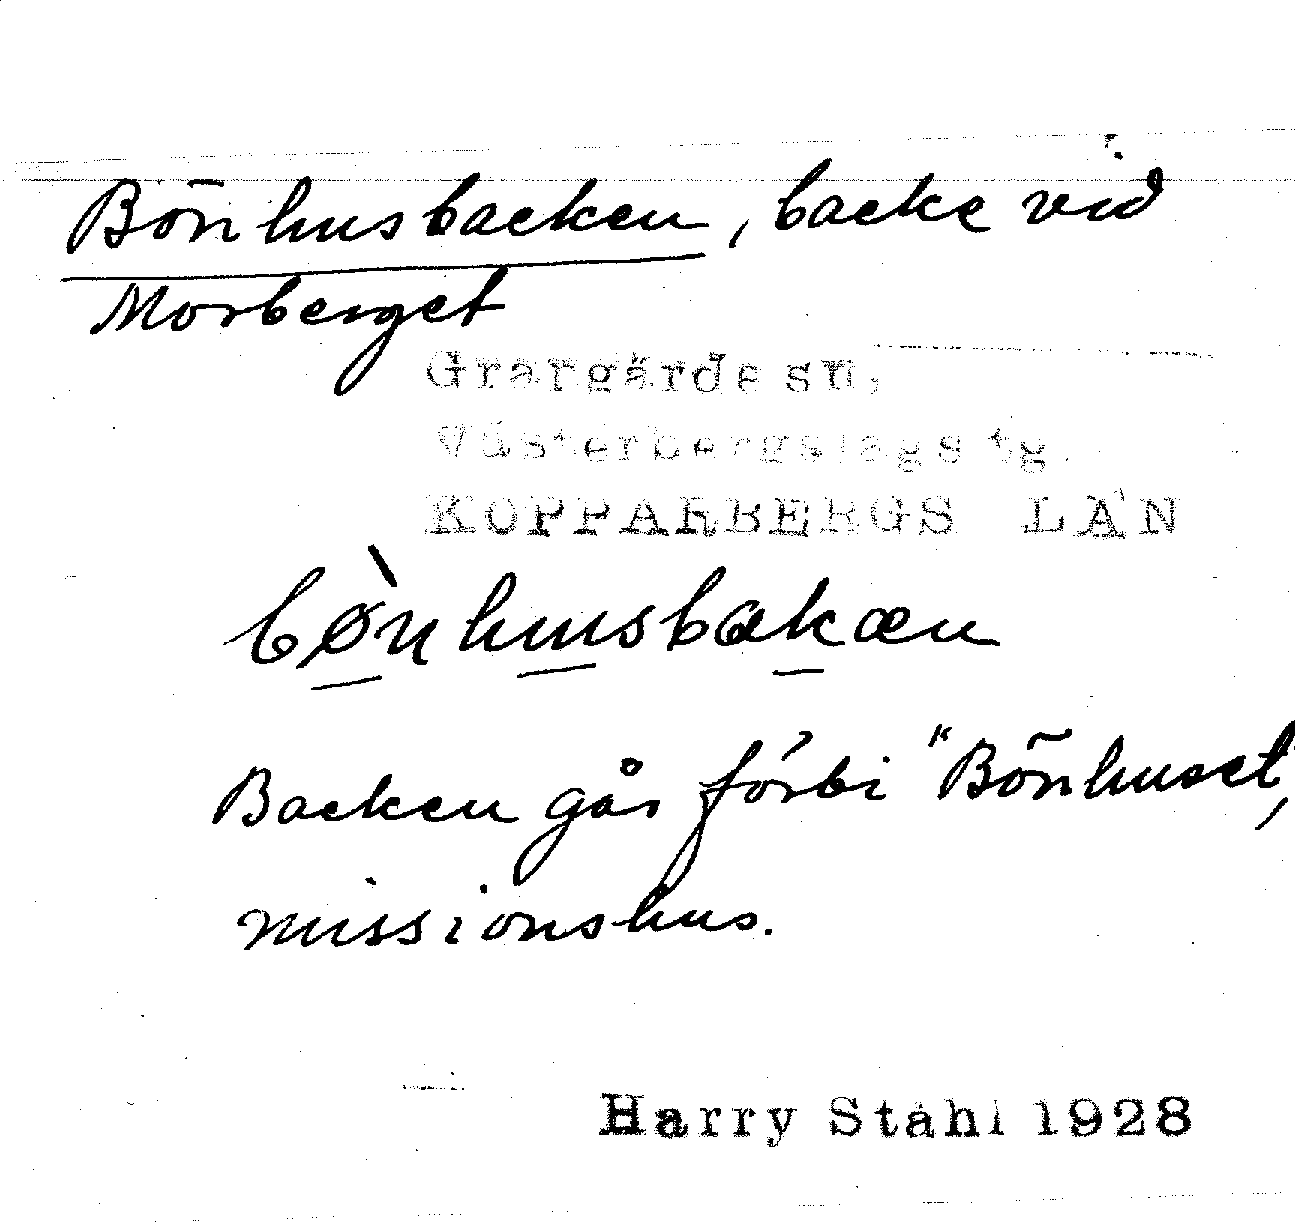 Bönhusbacken, backe vid
Morberget
Grangärde sn,
Västerbergslags tg.
KOPPARBERGS LÄN
bø̀nhusbakæn
Backen går förbi "Bönhuset",
missionshus.
Harry Ståhl 1928